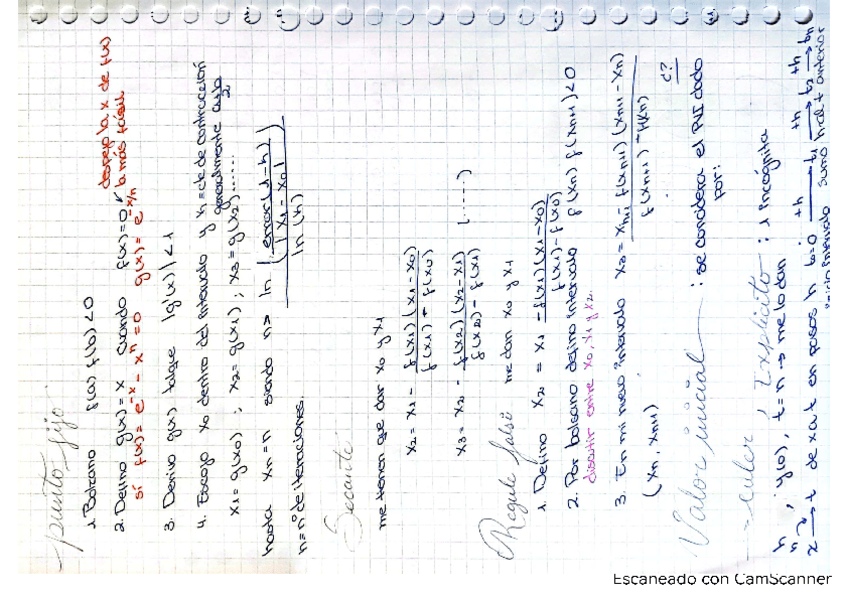 punto fijo
1. Bolzano f(a) f(b) < 0
2. Defino g(x) = x cuando f(x) = 0 despejo la x de f(x) la más fácil
si f(x) = e^-x - x^n = 0 g(x) = e^-x/n
3. Derivo g(x) talque |g'(x)| < 1
4. Escojo x0 dentro del intervalo y h = cte de contracción generalmente
x1 = g(x0) ; x2 = g(x1) ; x3 = g(x2) ......
hasta xn = n siendo n > ln ( error (1-h) / |x1 - x0| ) / ln (h)
n = nº de iteraciones.
Secante
me tienen que dar x0 y x1
x2 = x1 - f(x1) (x1 - x0) / f(x1) - f(x0)
x3 = x2 - f(x2) (x2 - x1) / f(x2) - f(x1) (......)
Regule falsi me dan x0 y x1
1. Defino x2 = x1 - f(x1) (x1 - x0) / f(x1) - f(x0)
2. Por bolzano defino intervalo f(xn) f(xn+1) < 0
discutir entre x0, x1 y x2.
3. En mi nuevo intervalo x3 = xn+1 - f(xn+1) (xn+1 - xn) / f(xn+1) - f(xn)
(xn, xn+1) ¿?
Valor inicial : se considera el PVI dado por:
euler, Explicito : 1 incógnita
h, y(0), t = n → me lo dan
de x a t en pasos h t0=0 +h → t1 +h → t2 +h → tn
inicio intervalo sumo h al t anterior
Escaneado con CamScanner